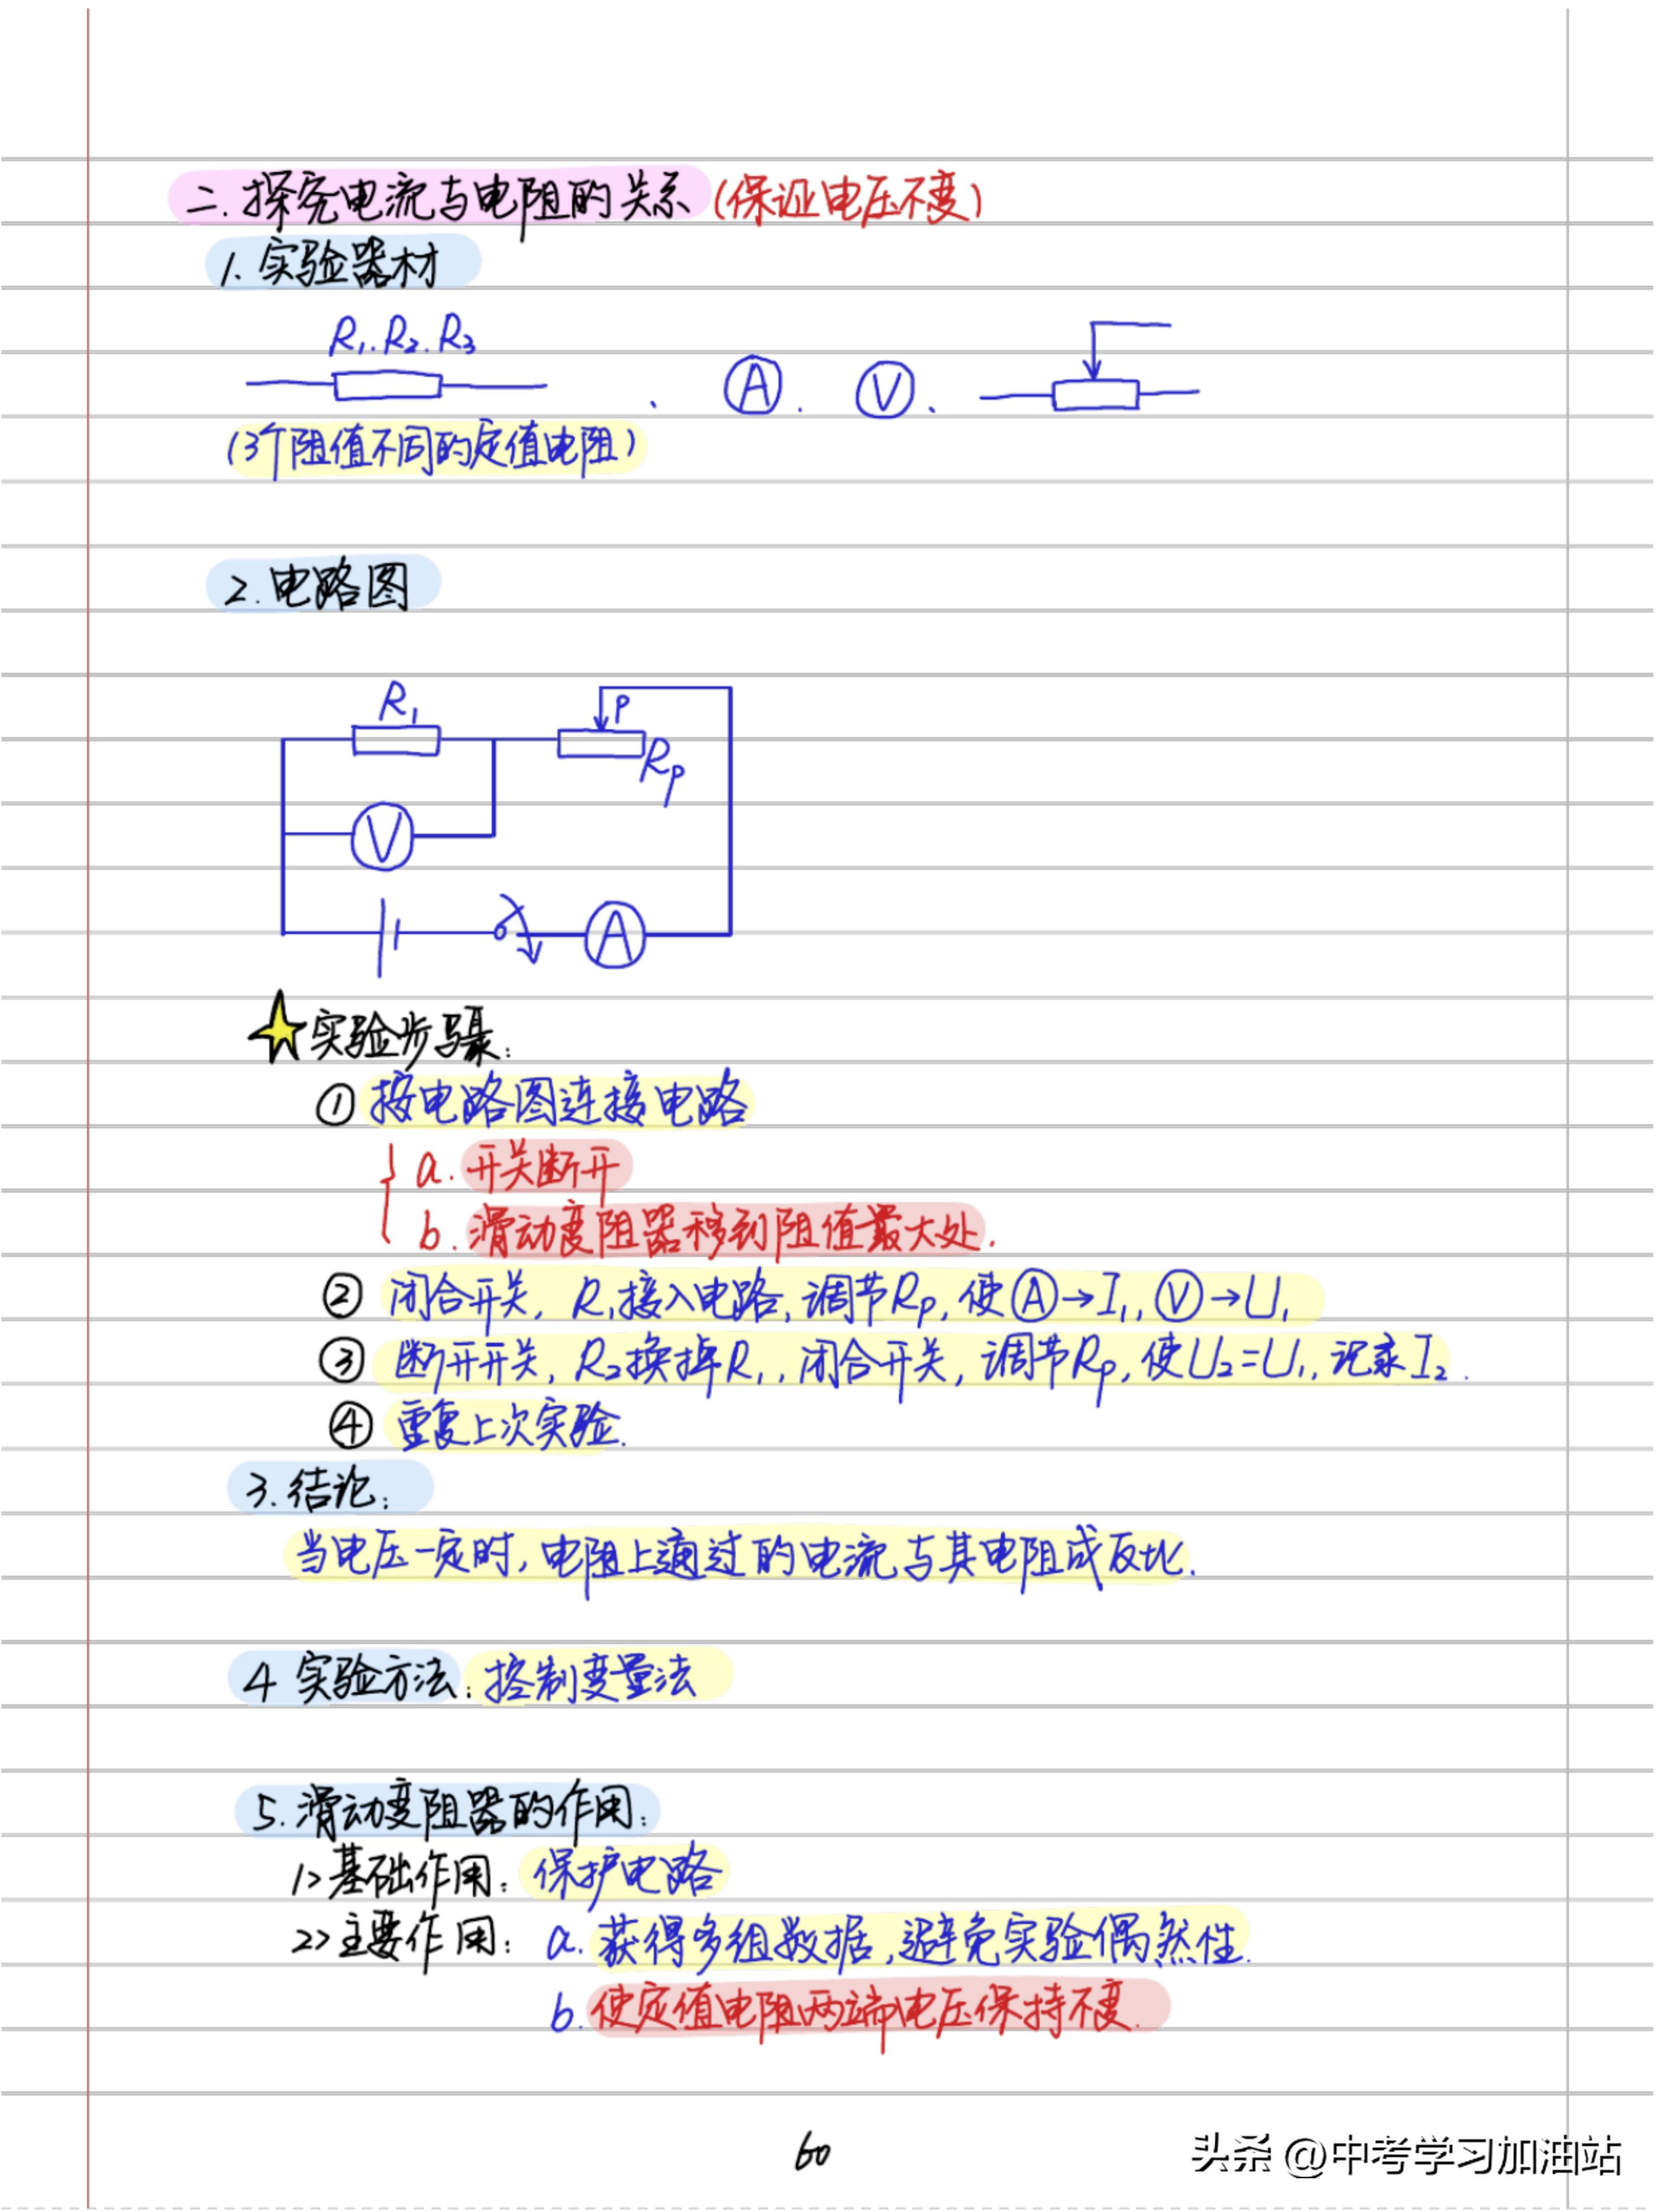 二.探究电流与电阻的关系(保证电压不变)
1.实验器材
R₁.R₂.R₃
、 Ⓐ 、 Ⓥ 、
(3个阻值不同的定值电阻)
2.电路图
R₁ P
Rp
V
A
实验步骤:
① 按电路图连接电路
a.开关断开
b.滑动变阻器移到阻值最大处.
② 闭合开关, R₁接入电路,调节Rp,使Ⓐ→I₁,Ⓥ→U₁
③ 断开开关, R₂换掉R₁,闭合开关,调节Rp,使U₂=U₁,记录I₂.
④ 重复上次实验.
3.结论:
当电压一定时,电阻上通过的电流与其电阻成反比.
4 实验方法:控制变量法
5.滑动变阻器的作用:
1>基础作用:保护电路
2>主要作用: a.获得多组数据,避免实验偶然性.
b.使定值电阻两端电压保持不变.
60
头条 @中考学习加油站